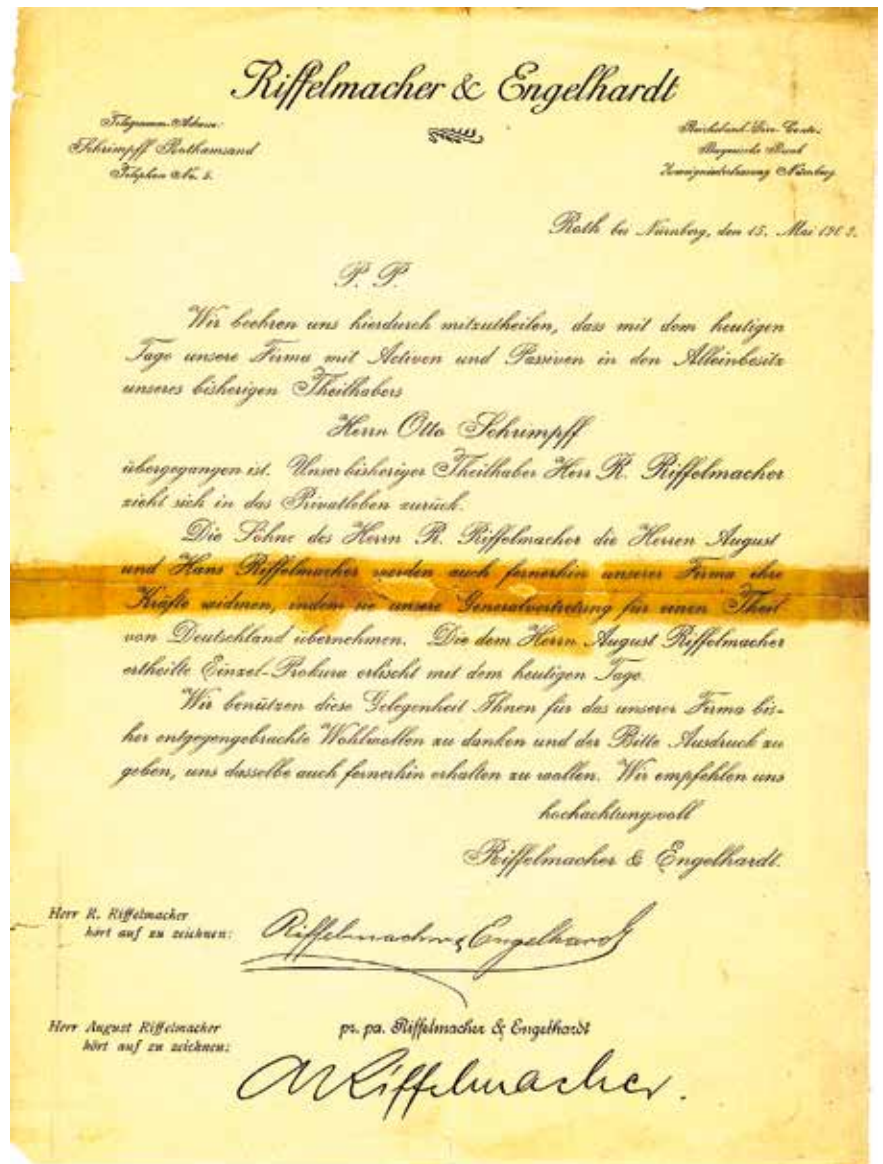 Riffelmacher & Engelhardt
Telegramm-Adresse:
Schrimpff Rothamsand
Telephon No. 5.
Reichsbank-Giro-Conto.
Bayerische Bank
Zweigniederlassung Nürnberg
Roth bei Nürnberg, den 15. Mai
P. P.
Wir beehren uns hierdurch mitzutheilen, dass mit dem heutigen
Tage unsere Firma mit Activen und Passiven in den Alleinbesitz
unseres bisherigen Theilhabers
Herrn Otto Schrimpff
übergegangen ist. Unser bisheriger Theilhaber Herr R. Riffelmacher
zieht sich in das Privatleben zurück.
Die Söhne des Herrn R. Riffelmacher die Herren August
und Hans Riffelmacher werden auch fernerhin unserer Firma ihre
Kräfte widmen, indem sie unsere Generalvertretung für einen Theil
von Deutschland übernehmen. Die dem Herrn August Riffelmacher
ertheilte Einzel-Prokura erlischt mit dem heutigen Tage.
Wir benützen diese Gelegenheit Ihnen für das unserer Firma bis-
her entgegengebrachte Wohlwollen zu danken und der Bitte Ausdruck zu
geben, uns dasselbe auch fernerhin erhalten zu wollen. Wir empfehlen uns
hochachtungsvoll
Riffelmacher & Engelhardt.
Herr R. Riffelmacher
hört auf zu zeichnen:
Riffelmacher & Engelhardt
Herr August Riffelmacher
hört auf zu zeichnen:
pr. pa. Riffelmacher & Engelhardt
A Riffelmacher.